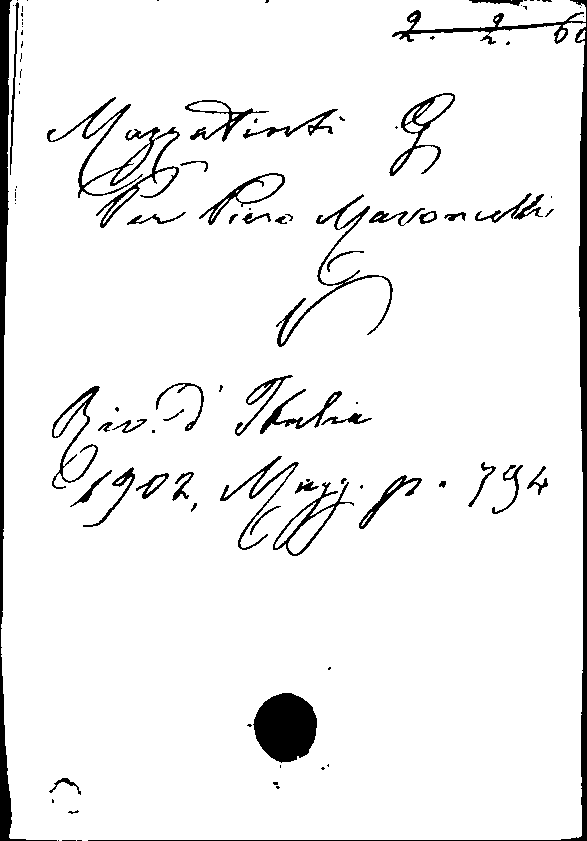 2. 2. 60
Mazzatinti G
Per Piero Maroncelli
Riv. d'Italia
1902, Magg. p. 794